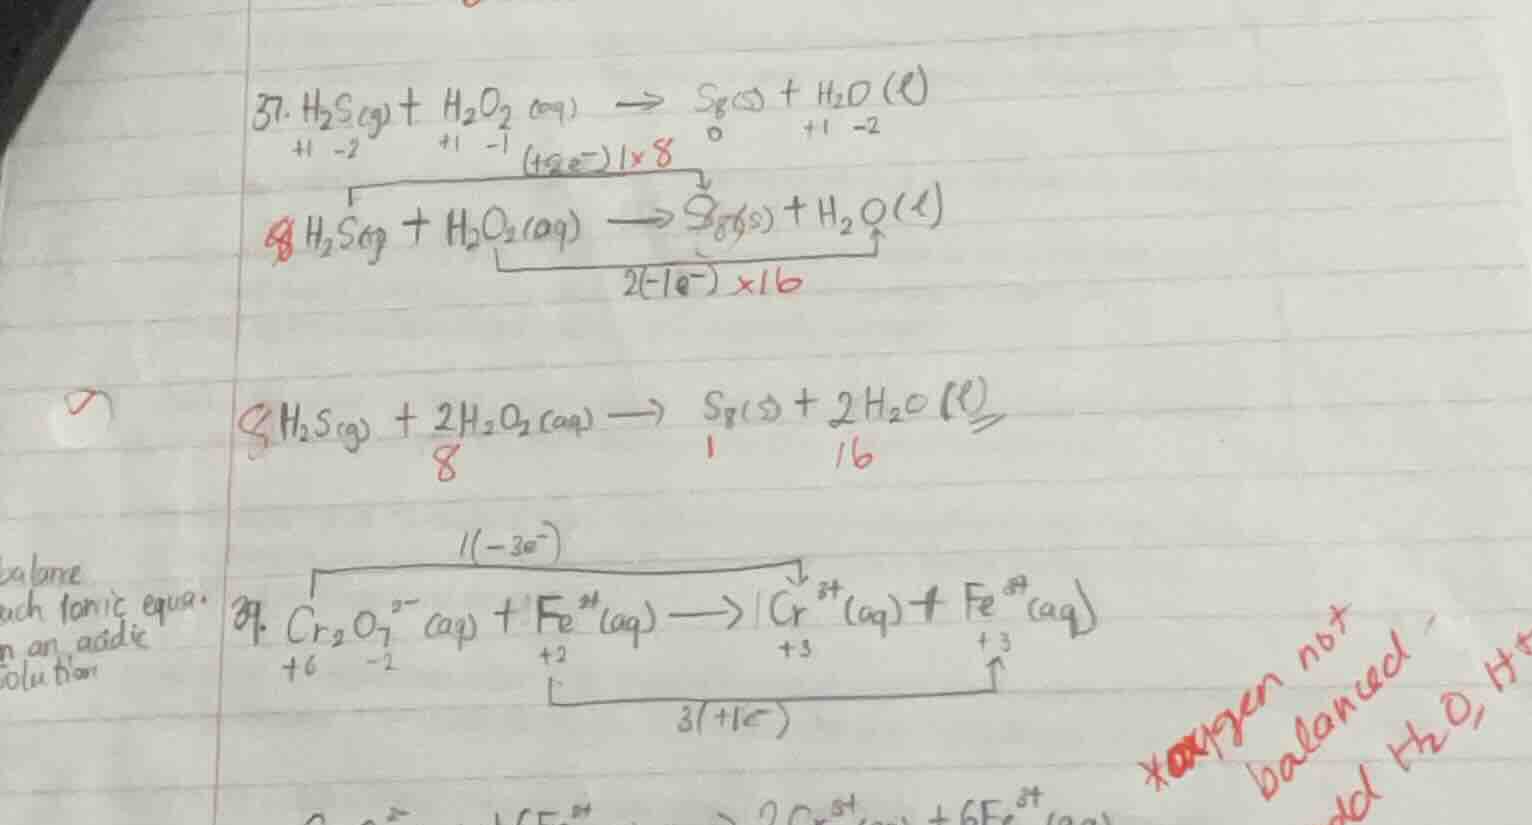 37. H₂S(g) + H₂O₂ (aq) → S₈(s) + H₂O (l)
+1 -2 +1 -1 0 +1 -2
(+2e⁻) 1 × 8
8 H₂S(g) + H₂O₂(aq) → S₈(s) + H₂O(l)
2(-1e⁻) ×16
8 H₂S(g) + 2H₂O₂(aq) → S₈(s) + 2H₂O(l)
8 1 16
1(-3e⁻)
balance
ach Ionic equa.
n an acidic
olution
39. Cr₂O₇²⁻ (aq) + Fe²⁺(aq) → 1Cr³⁺(aq) + Fe³⁺(aq)
+6 -2 +2 +3 +3
3(+1e⁻)
*oxygen not
balanced
dd H₂O, H+
2Cr³⁺ + 6Fe³⁺(aq)